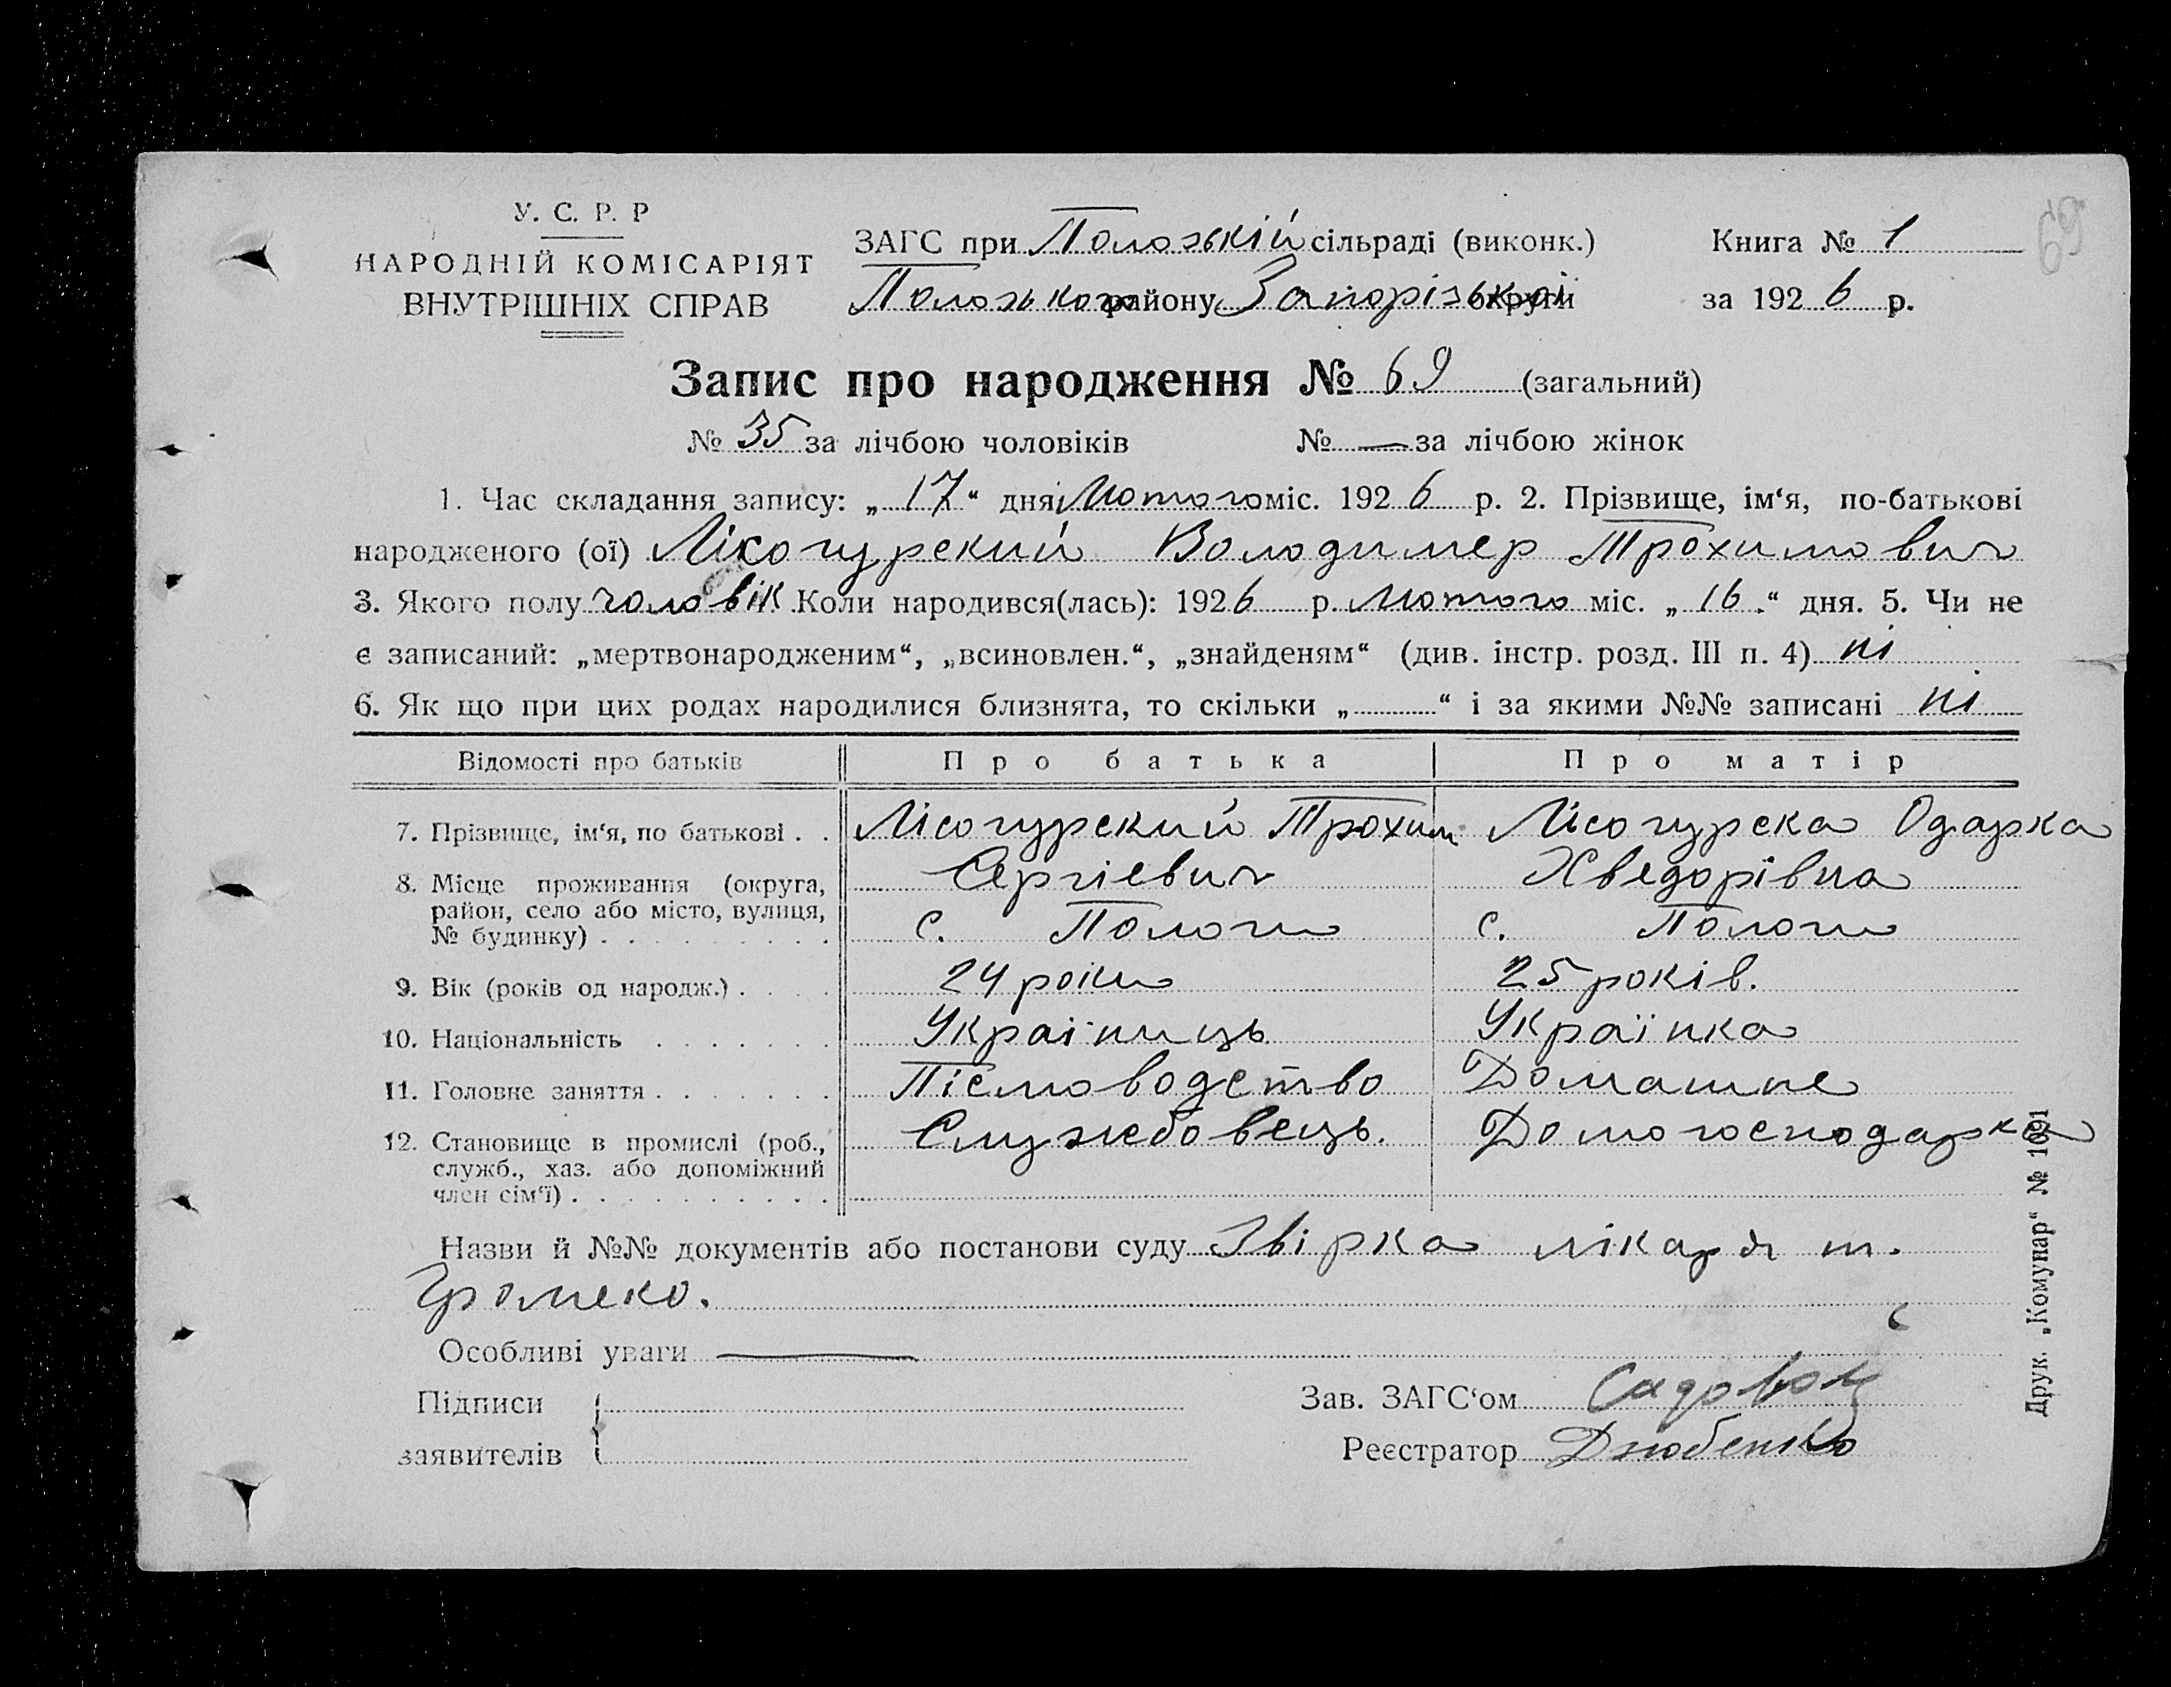 У. С. Р. Р
НАРОДНІЙ КОМІСАРІЯТ
ВНУТРІШНІХ СПРАВ
ЗАГС при Полозькій сільраді (виконк.)
Полозького району Запорізької округи
Книга № 1
за 1926 р.
69
Запис про народження № 69 (загальний)
№ 35 за лічбою чоловіків № — за лічбою жінок
1. Час складання запису: „17“ дня Лютого міс. 1926 р. 2. Прізвище, ім‘я, по-батькові
народженого (ої) Лісогурский Володимер Трохимович
3. Якого полу чоловік Коли народився(лась): 1926 р. Лютого міс. „16.“ дня. 5. Чи не
є записаний: „мертвонародженим“, „всиновлен.“, „знайденям“ (див. інстр. розд. III п. 4) ні
6. Як що при цих родах народилися близнята, то скільки „ “ і за якими №№ записані ні
Відомості про батьків Про батька Про матір
7. Прізвище, ім‘я, по батькові . . Лісогурский Трохим Лісогурска Одарка
Сергієвич Хведорівна
8. Місце проживання (округа, район, село або місто, вулиця, № будинку) . . . с. Пологи с. Пологи
9. Вік (років од народж.) . . . . 24 роки 25 років.
10. Національність . . . . . . . Україниць Українка
11. Головне заняття . . . . . . . Пісмоводство Домашне
12. Становище в промислі (роб., служб., хаз. або допоміжний член сім‘ї) . . . Службовець. Домогосподарка
Назви й №№ документів або постанови суду Звірка лікаря т.
Громеко.
Особливі уваги —
Підписи
заявителів
Зав. ЗАГС‘ом
Реєстратор Дзюбенко
Друк. „Комунар“ № 1691